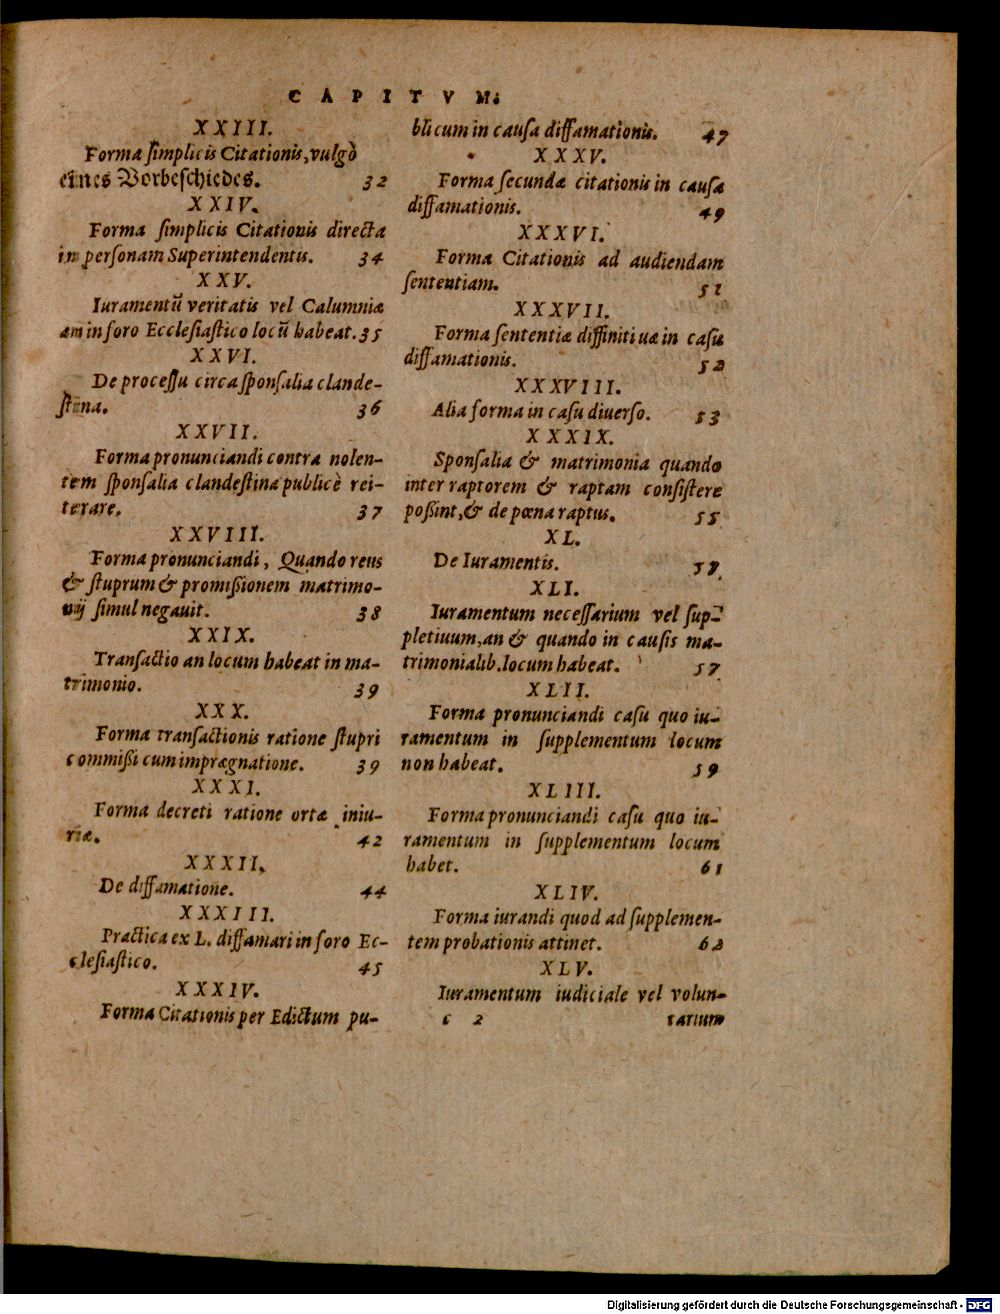 CAPITVM.
XXIII.
Forma ſimplicis Citationis, vulgò
eines Vorbeſchiedes. 32
XXIV.
Forma ſimplicis Citationis directa
in perſonam Superintendentis. 34
XXV.
Iuramentũ veritatis vel Calumniæ
an in foro Eccleſiaſtico locũ habeat. 35
XXVI.
De proceſſu circa ſponſalia clande-
ſtina. 36
XXVII.
Forma pronunciandi contra nolen-
tem ſponſalia clandeſtina publicè rei-
terare. 37
XXVIII.
Forma pronunciandi, Quando reus
& ſtuprum & promißionem matrimo-
nij ſimul negauit. 38
XXIX.
Tranſactio an locum habeat in ma-
trimonio. 39
XXX.
Forma tranſactionis ratione ſtupri
commißi cum imprægnatione. 39
XXXI.
Forma decreti ratione ortæ iniu-
riæ. 42
XXXII.
De diffamatione. 44
XXXIII.
Practica ex L. diffamari in foro Ec-
cleſiaſtico. 45
XXXIV.
Forma Citationis per Edictum pu-
blicum in cauſa diffamationis. 47
XXXV.
Forma ſecundæ citationis in cauſa
diffamationis. 49
XXXVI.
Forma Citationis ad audiendam
ſententiam. 51
XXXVII.
Forma ſententiæ diffinitiuæ in caſu
diffamationis. 52
XXXVIII.
Alia forma in caſu diuerſo. 53
XXXIX.
Sponſalia & matrimonia quando
inter raptorem & raptam conſiſtere
poßint, & de pœna raptus. 55
XL.
De Iuramentis. 57.
XLI.
Iuramentum neceſſarium vel ſup-
pletiuum, an & quando in cauſis ma-
trimonialib. locum habeat. 57
XLII.
Forma pronunciandi caſu quo iu-
ramentum in ſupplementum locum
non habeat. 59
XLIII.
Forma pronunciandi caſu quo iu-
ramentum in ſupplementum locum
habet. 61
XLIV.
Forma iurandi quod ad ſupplemen-
tem probationis attinet. 62
XLV.
Iuramentum iudiciale vel volun-
c 2 tarium
Digitalisierung gefördert durch die Deutsche Forschungsgemeinschaft - DFG